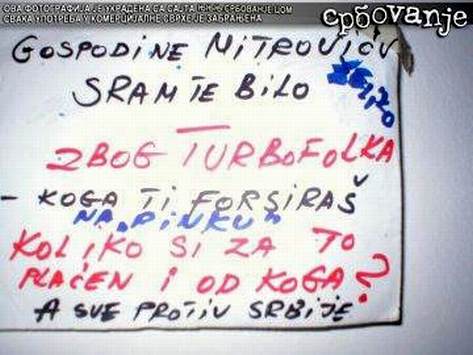 ОВА ФОТОГРАФИЈА ЈЕ УКРАДЕНА СА САЈТА СРБОВАЊЕ.ЦОМ
СВАКА УПОТРЕБА У КОМЕРЦИЈАЛНЕ СВРХЕ ЈЕ ЗАБРАЊЕНА
србовanje
GOSPODINE MITROVIĆU
SRAM TE BILO
ZBOG TURBOFOLKA
- KOGA TI FORSIRAŠ
NA „PINKU"
KOLIKO SI ZA TO
PLAĆEN I OD KOGA?
A SVE PROTIV SRBIJE